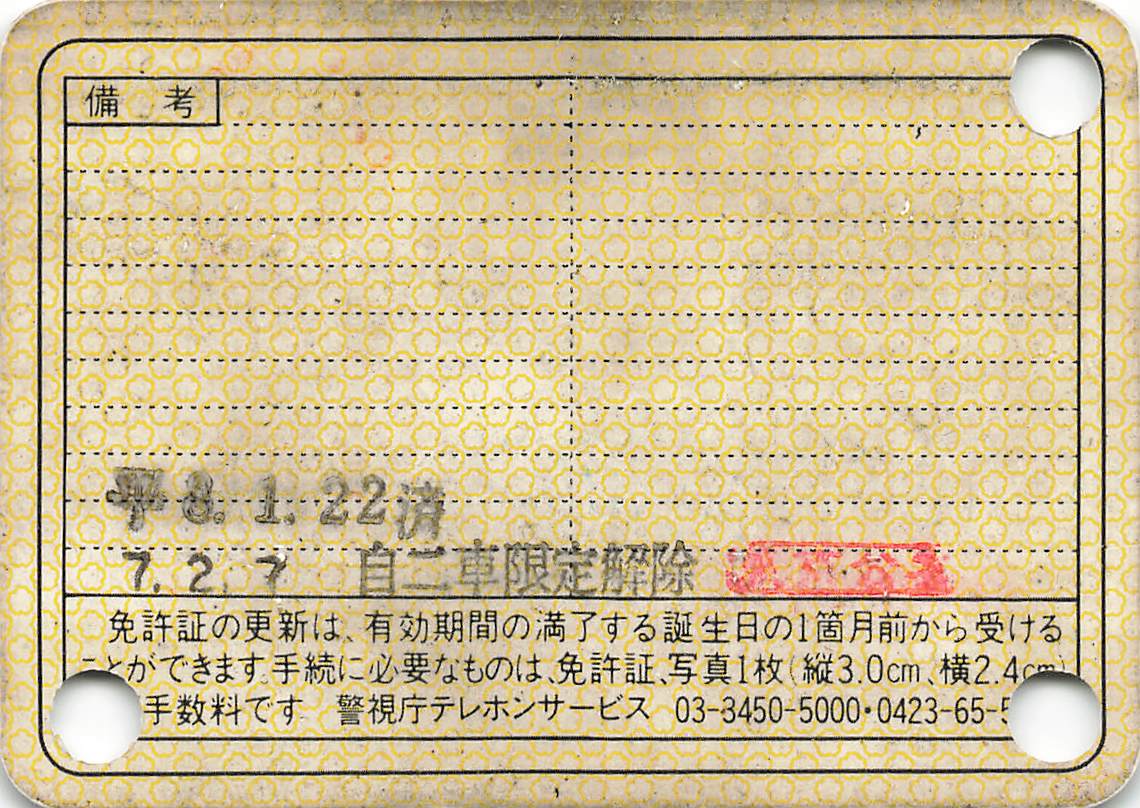 備考
平 8. 1. 22 済
7. 2. 7 自二車限定解除
免許証の更新は、有効期間の満了する誕生日の1箇月前から受ける
ことができます。手続に必要なものは、免許証、写真1枚(縦3.0cm、横2.4cm)
手数料です 警視庁テレホンサービス 03-3450-5000・0423-65-5